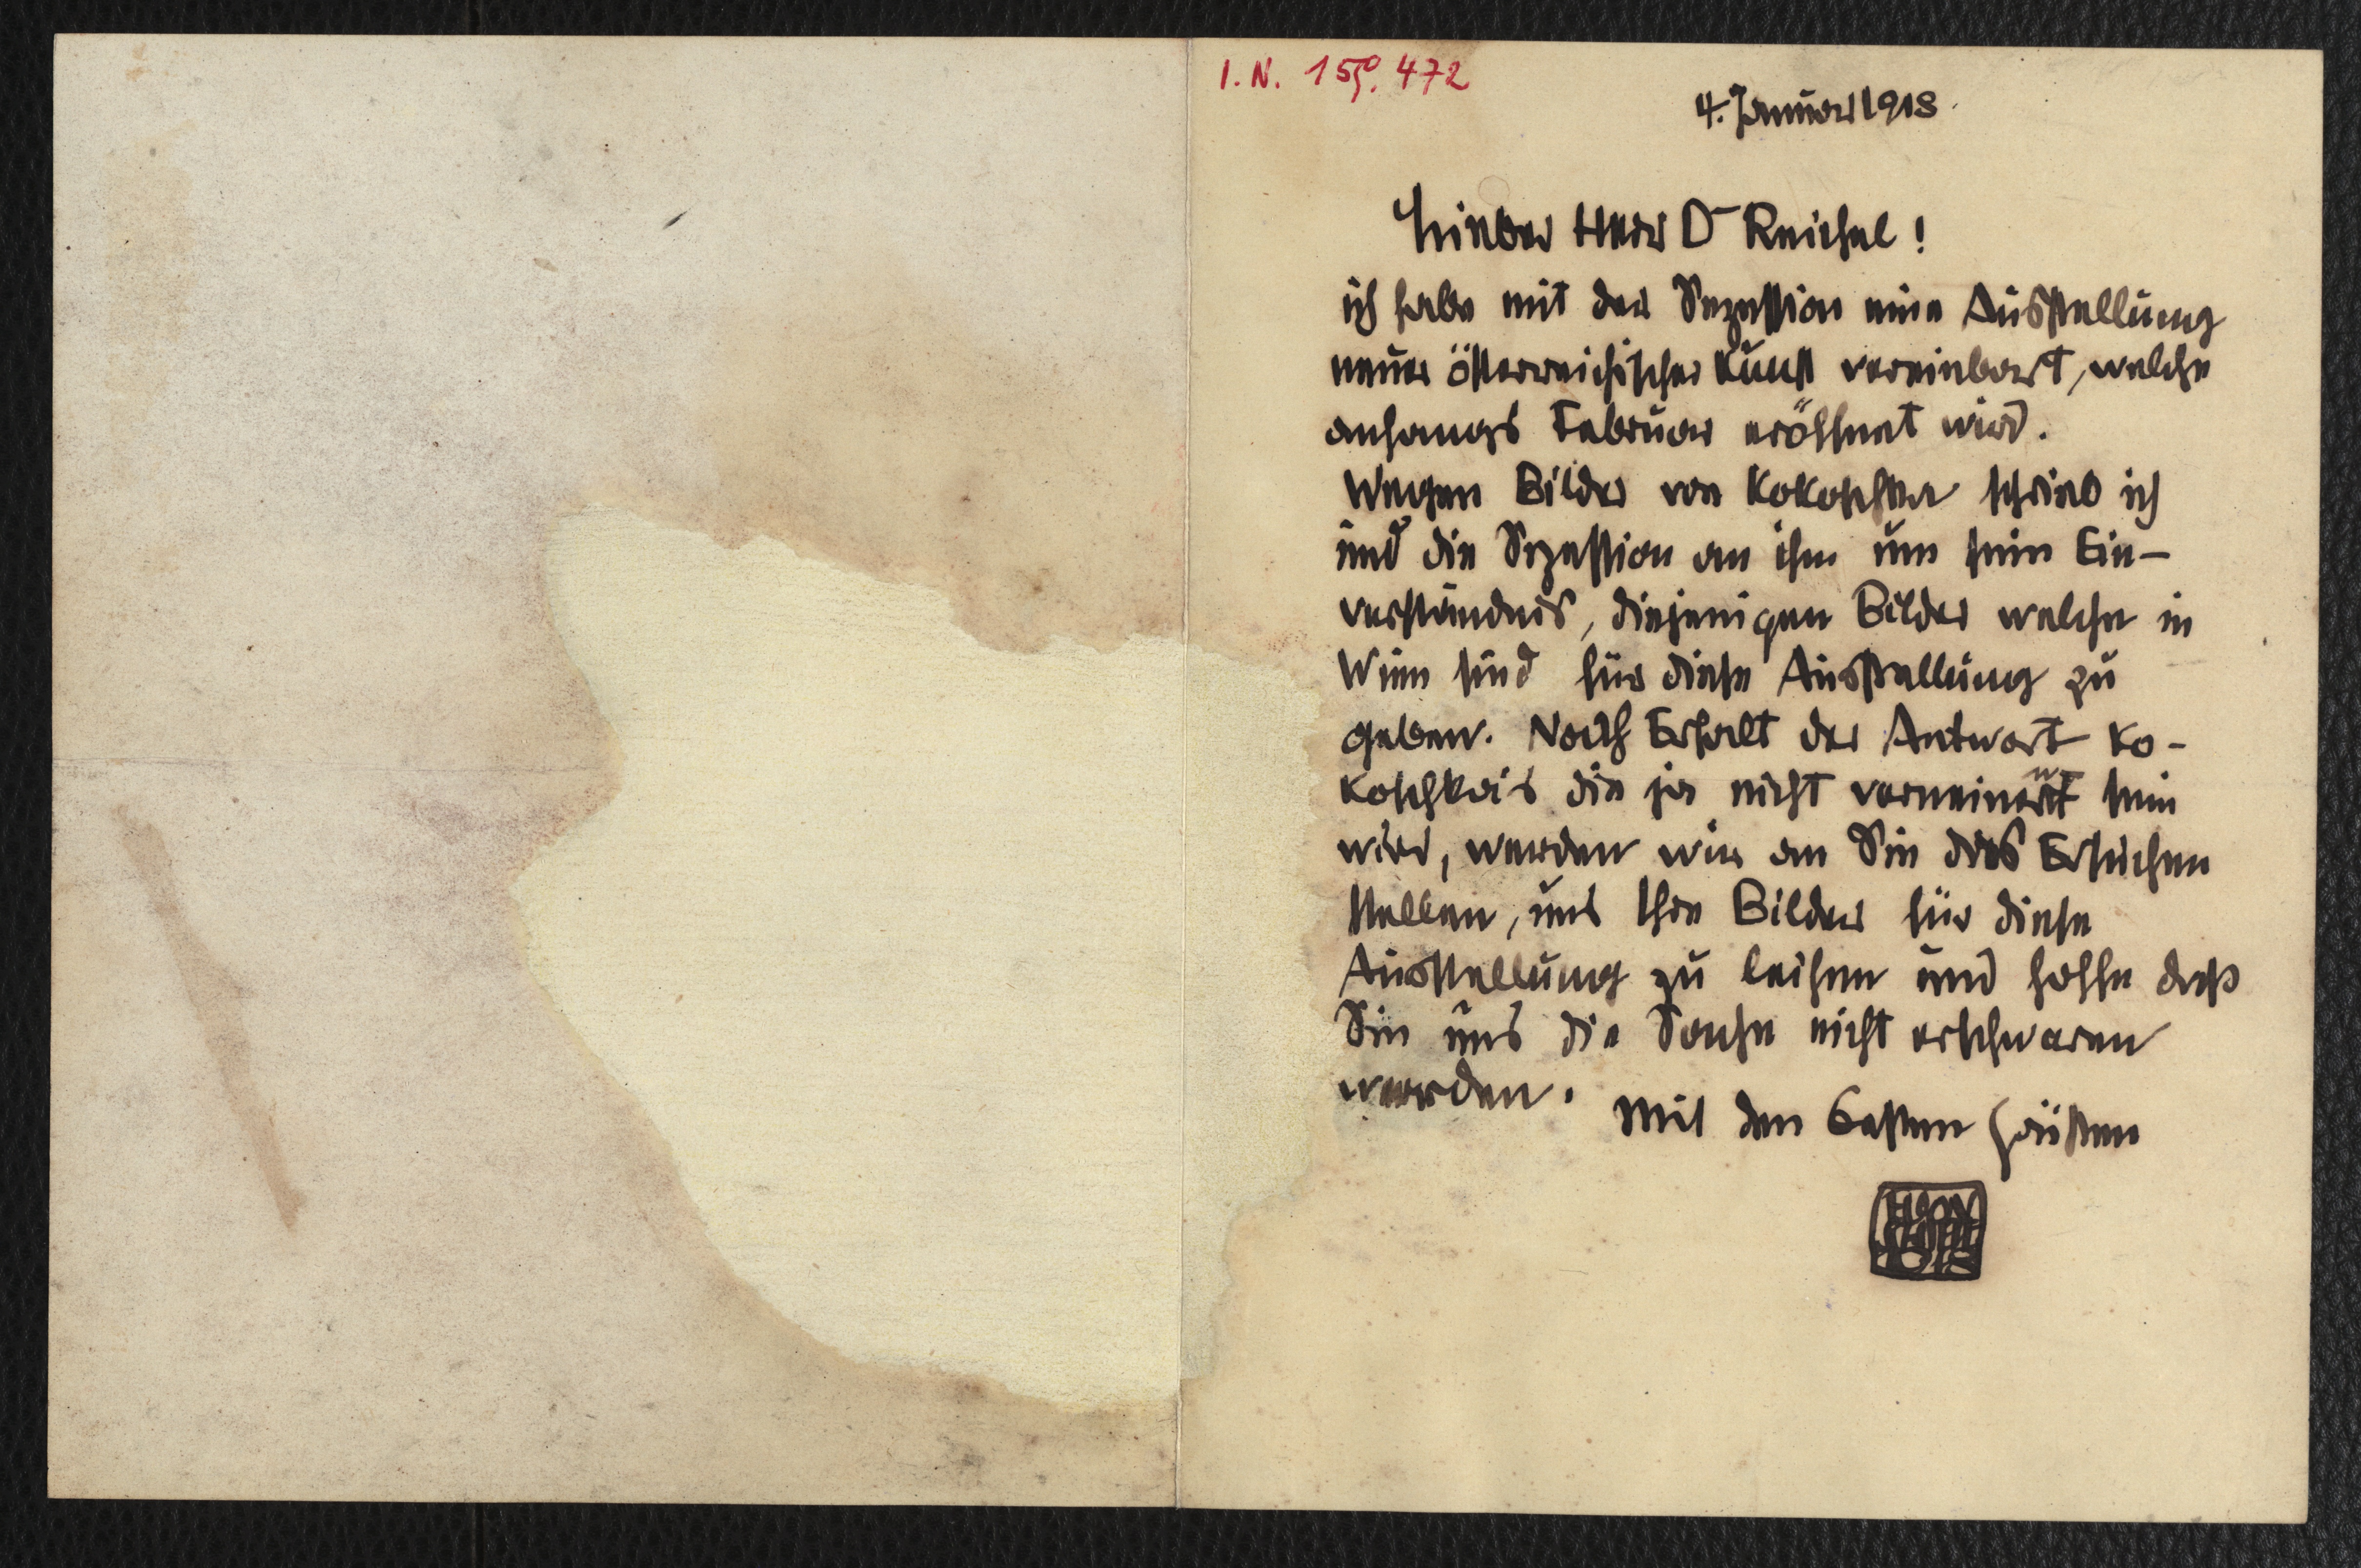 I.N. 159.472
4. Januar 1918.
Lieber Herr Dr Reichel!
ich habe mit der Sezession eine Ausstellung
neuer österreichischer Kunst vereinbart, welche
anfangs Februar eröffnet wird.
Wegen Bilder von Kokoschka schrieb ich
und die Sezession an ihm um sein Ein-
verständnis, diejenigen Bilder welche in
Wien sind für diese Ausstellung zu
geben. Nach Erhalt der Antwort Ko-
koschka's die ja nicht verneinent sein
wird, werden wir an Sie das Ersuchen
stellen, uns Ihre Bilder für diese
Ausstellung zu leihen und hoffe daß
Sie uns die Sache nicht erschweren
werden.
Mit den besten Grüßen
EGON
SCHIELE
1918